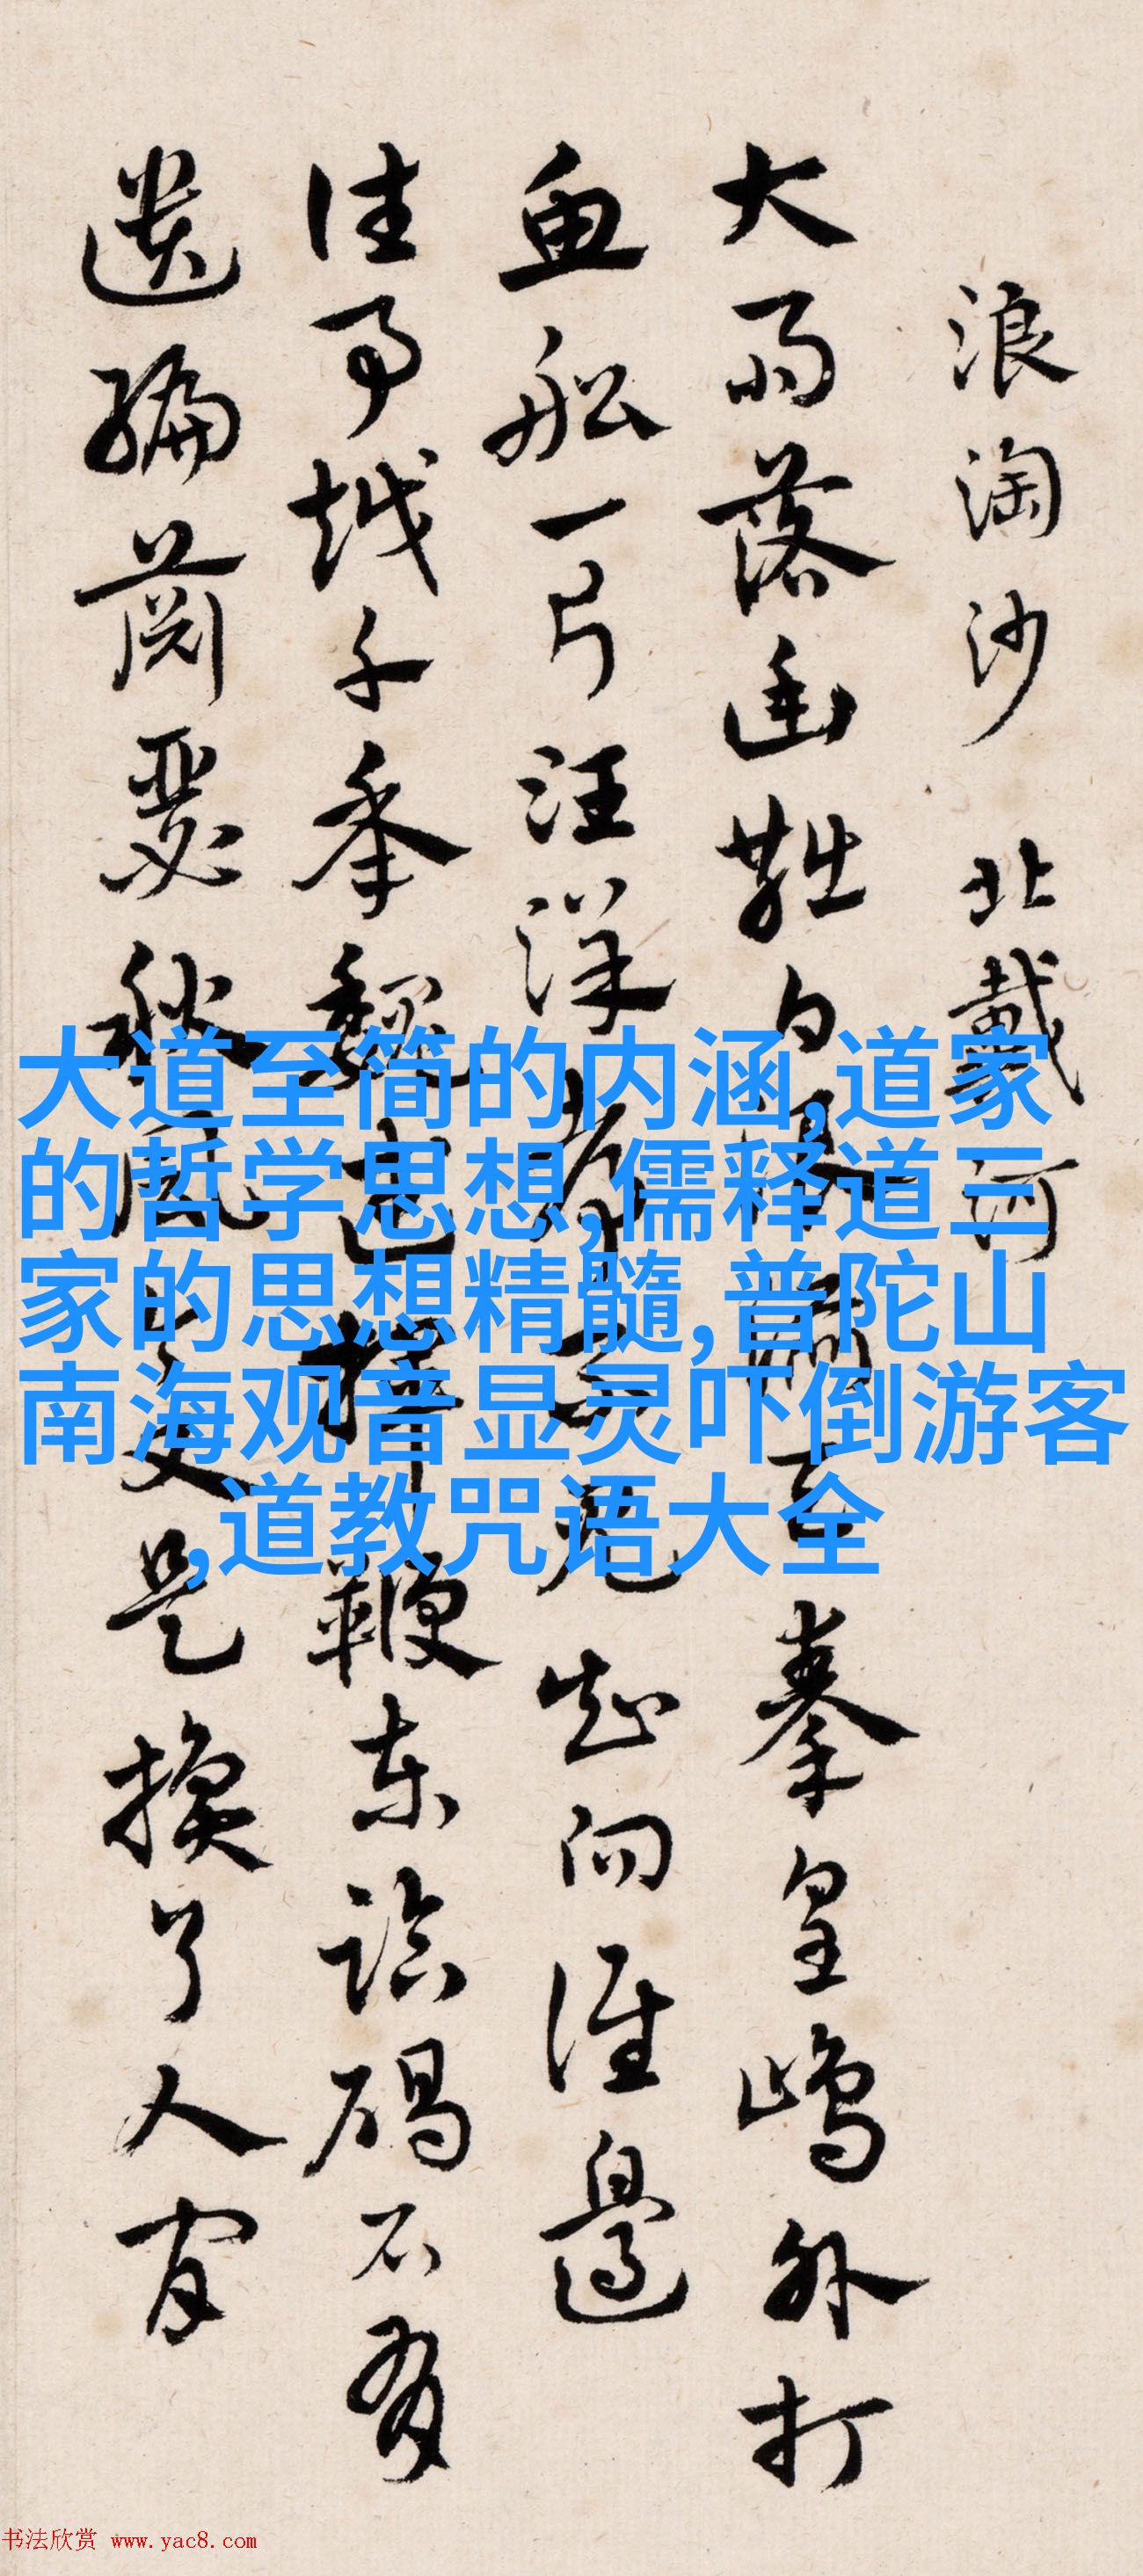 浪淘沙 北戴河
大雨落幽燕白浪滔天秦皇島外打
魚船一片汪洋都不見知向誰邊
往事越千年魏武揮鞭東臨碣石有
遺編蕭瑟秋風今又是換了人間
大道至简的内涵,道家
的哲学思想,儒释道三
家的思想精髓,普陀山
南海观音显灵吓倒游客
,道教咒语大全
书法欣赏 www.yac8.com